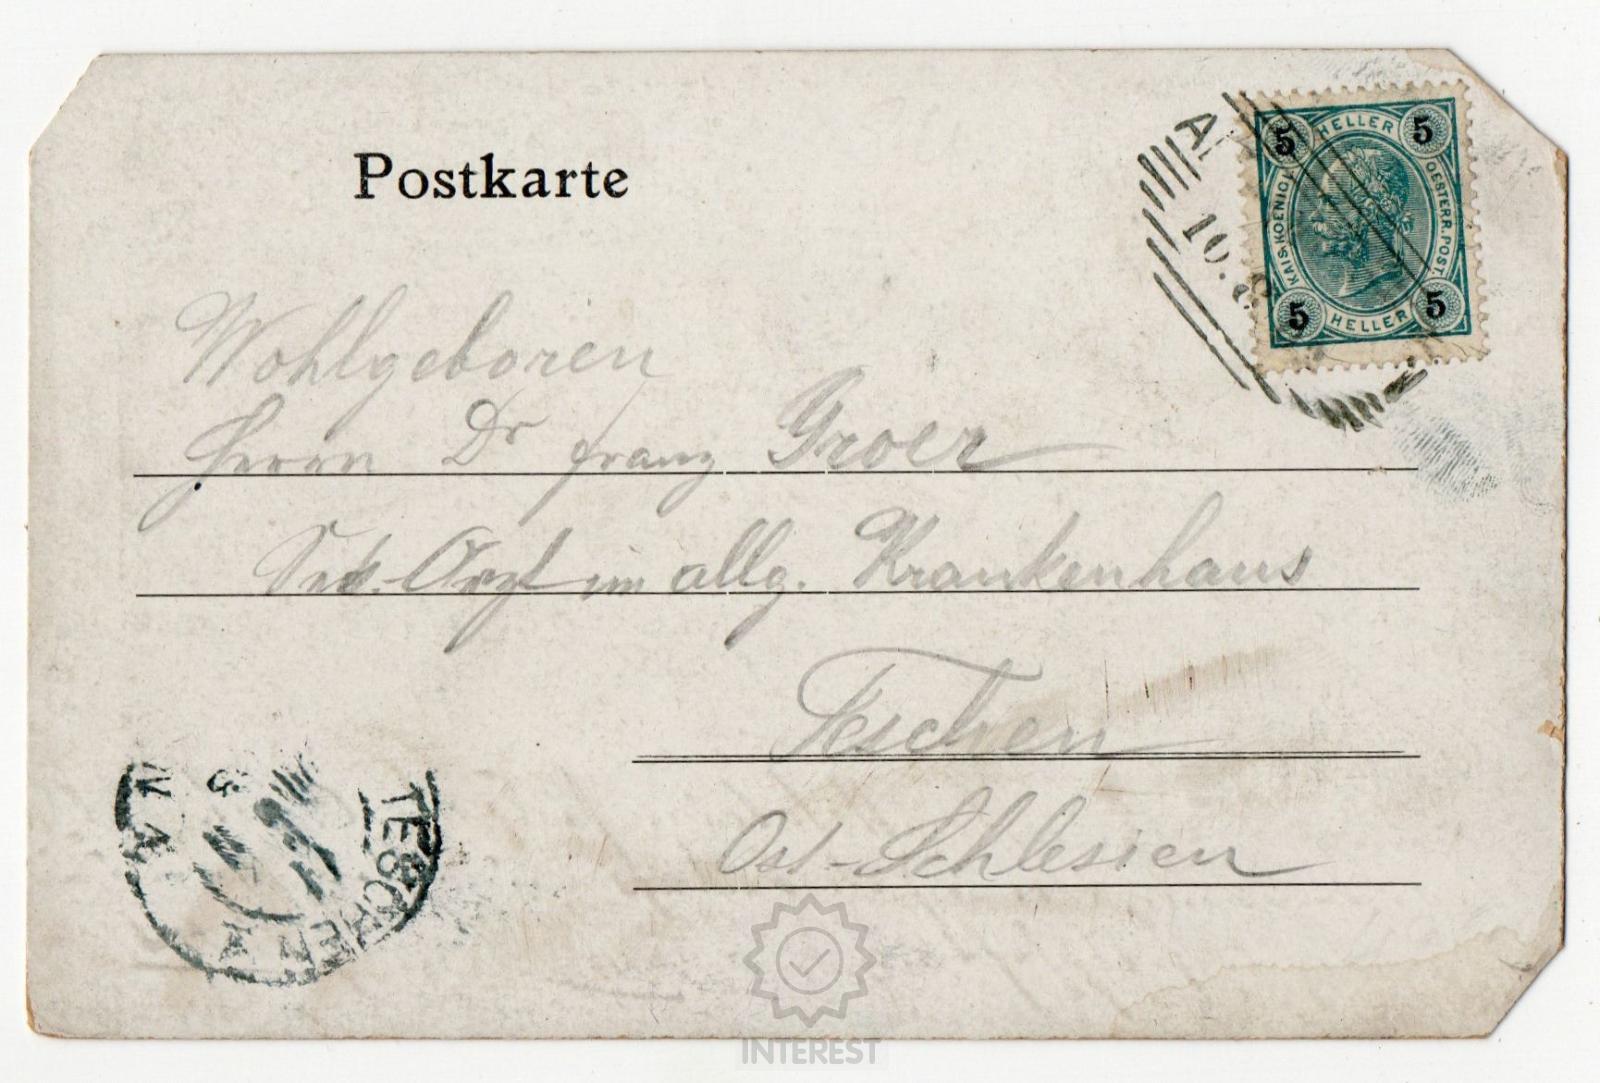 Postkarte
5 HELLER 5
KAIS. KOENIGL. OESTERR. POST.
5 HELLER 5
10. 8
Wohlgeboren
Herrn Dr franz Groër
Sek.-Arzt im allg. Krankenhaus
Teschen
Ost-Schlesien
TESCHEN
INTEREST